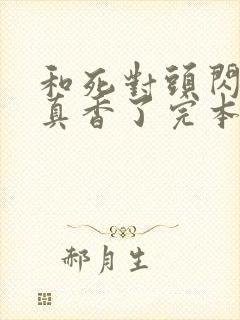 和死對頭閃
真香了完本
郝月生